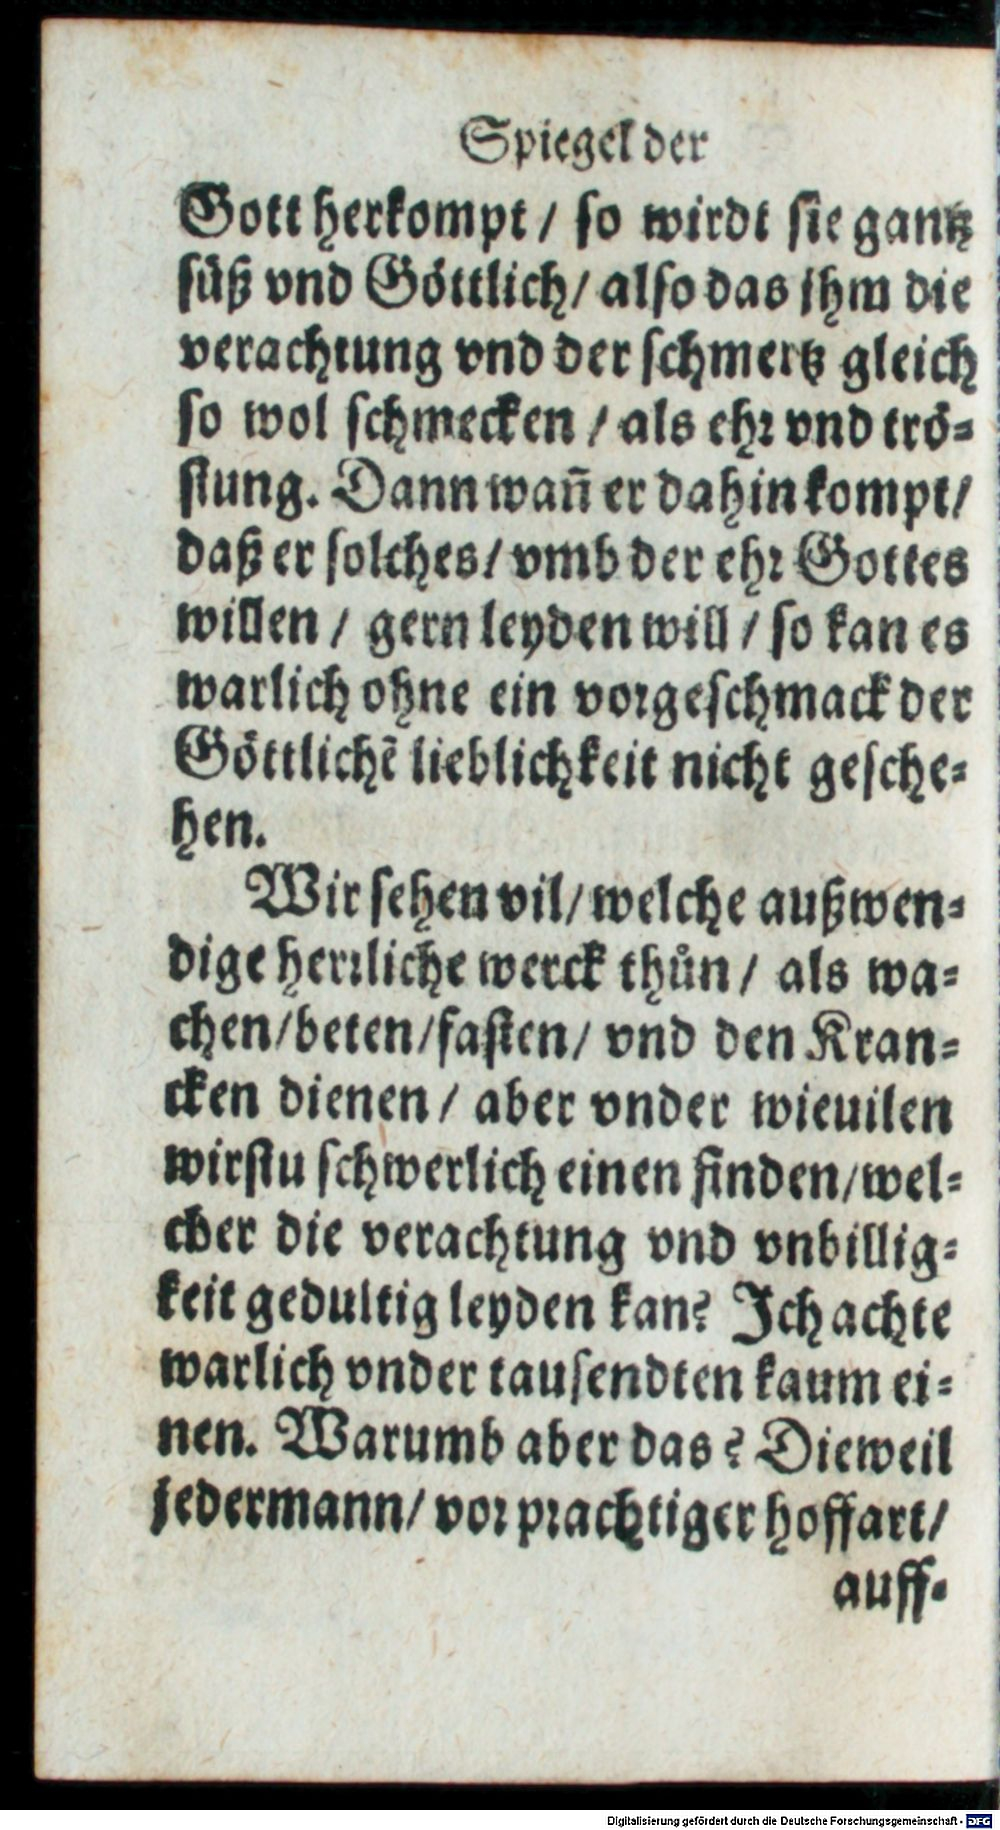 Spiegel der
Gott herkompt / so wirdt sie gantz
süß vnd Göttlich / also das jhm die
verachtung vnd der schmertz gleich
so wol schmecken / als ehr vnd trö-
stung. Dann wañ er dahin kompt /
daß er solches / vmb der ehr Gottes
willen / gern leyden will / so kan es
warlich ohne ein vorgeschmack der
Göttlichẽ lieblichkeit nicht gesche-
hen.
Wir sehen vil / welche außwen-
dige herrliche werck thůn / als wa-
chen / beten / fasten / vnd den Kran-
cken dienen / aber vnder wieuilen
wirstu schwerlich einen finden / wel-
cher die verachtung vnd vnbillig-
keit gedultig leyden kan? Ich achte
warlich vnder tausendten kaum ei-
nen. Warumb aber das? Dieweil
jedermann / vor prachtiger hoffart /
auff-
Digitalisierung gefördert durch die Deutsche Forschungsgemeinschaft - DFG